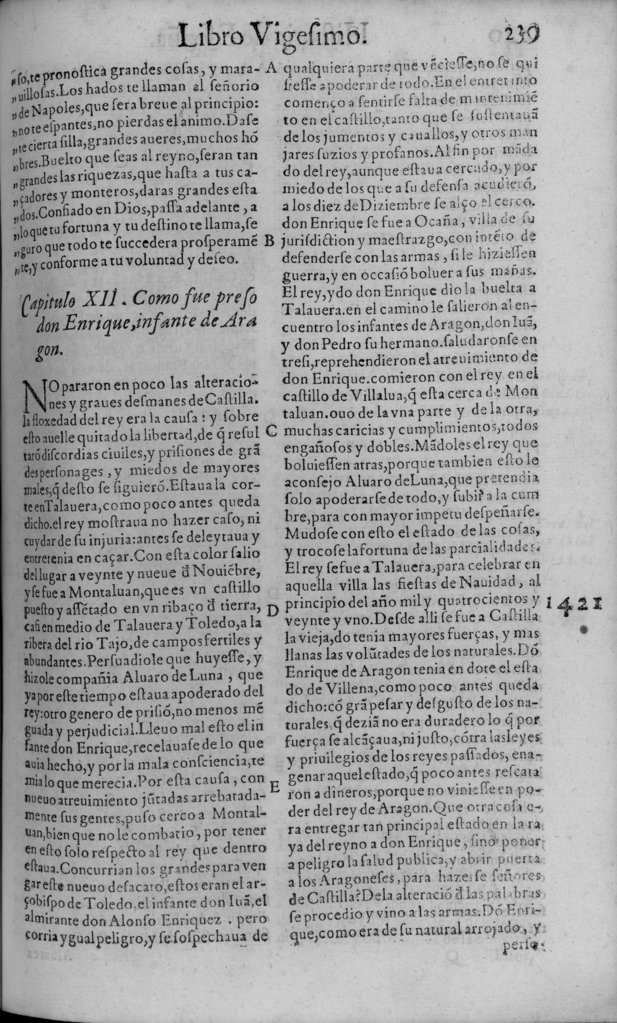 Libro Vigesimo. 239
„ so, te pronostica grandes cosas, y mara-
„ uillosas. Los hados te llaman al señorio
„ de Napoles, que sera breue al principio:
„ no te espantes, no pierdas el animo. Dase
„ te cierta silla, grandes aueres, muchos hō
„ bres. Buelto que seas al reyno, seran tan
„ grandes las riquezas, que hasta a tus ca-
„ çadores y monteros, daras grandes esta
„ dos. Confiado en Dios, passa adelante, a
„ lo que tu fortuna y tu destino te llama, se
„ guro que todo te succedera prosperamē
„ te, y conforme a tu voluntad y deseo.
Capitulo XII. Como fue preso
don Enrique, infante de Ara
gon.
NO pararon en poco las alteracio-
nes y graues desmanes de Castilla.
la floxedad del rey era la causa: y sobre
esto auelle quitado la libertad, de q̄ resul
tarō discordias ciuiles, y prisiones de grā
des personages, y miedos de mayores
males, q̄ desto se siguierō. Estaua la cor-
te en Talauera, como poco antes queda
dicho. el rey mostraua no hazer caso, ni
cuydar de su injuria: antes se deleytaua y
entretenia en caçar. Con esta color salio
del lugar a veynte y nueue đ Nouiēbre,
y se fue a Montaluan, que es vn castillo
puesto y assētado en vn ribaço đ tierra,
casi en medio de Talauera y Toledo, a la
ribera del rio Tajo, de campos fertiles y
abundantes. Persuadiole que huyesse, y
hizole compañia Aluaro de Luna, que
ya por este tiempo estaua apoderado del
rey: otro genero de prisiō, no menos mē
guada y perjudicial. Lleuo mal esto el in
fante don Enrique, recelauase de lo que
auia hecho, y por la mala consciencia, te
mia lo que merecia. Por esta causa, con
nueuo atreuimiento jūtadas arrebatada-
mente sus gentes, puso cerco a Montal-
uan, bien que no le combatio, por tener
en esto solo respecto al rey que dentro
estaua. Concurrian los grandes para ven
gar este nueuo desacato, estos eran el ar-
çobispo de Toledo, el infante don Iuā, el
almirante don Alonso Enriquez. pero
corria ygual peligro, y se sospechaua de
A qualquiera parte que vēciesse, no se qui
siesse apoderar de todo. En el entretanto
començo a sentirse falta de mantenimiē
to en el castillo, tanto que se sustentauā
de los jumentos y cauallos, y otros man
jares suzios y profanos. Al fin por māda
do del rey, aunque estaua cercado, y por
miedo de los que a su defensa acudierō,
a los diez de Diziembre se alço el cerco.
don Enrique se fue a Ocaña, villa de su
B jurisdiction y maestrazgo, con intēto de
defenderse con las armas, si le hiziessen
guerra, y en occasiō boluer a sus mañas.
El rey, ydo don Enrique dio la buelta a
Talauera. en el camino le salieron al en-
cuentro los infantes de Aragon, don Iuā,
y don Pedro su hermano. saludaronse en
tresi, reprehendieron el atreuimiento de
don Enrique. comieron con el rey en el
castillo de Villalua, q̄ esta cerca de Mon
taluan. ouo de la vna parte y de la otra,
C muchas caricias y cumplimientos, todos
engañosos y dobles. Mādoles el rey que
boluiessen atras, porque tambien esto le
aconsejo Aluaro de Luna, que pretendia
solo apoderarse de todo, y subir a la cum
bre, para con mayor impetu despeñarse.
Mudose con esto el estado de las cosas,
y trocose la fortuna de las parcialidades.
El rey se fue a Talauera, para celebrar en
aquella villa las fiestas de Nauidad, al
D principio del año mil y quatrocientos y 1421
veynte y vno. Desde alli se fue a Castilla
la vieja, do tenia mayores fuerças, y mas
llanas las volūtades de los naturales. Dō
Enrique de Aragon tenia en dote el esta
do de Villena, como poco antes queda
dicho: cō grā pesar y desgusto de los na-
turales, q̄ deziā no era duradero lo q̄ por
fuerça se alcāçaua, ni justo, cōtra las leyes
y priuilegios de los reyes passados, ena-
genar aquel estado, q̄ poco antes rescata
E ron a dineros, porque no viniesse en po-
der del rey de Aragon. Que otra cosa e-
ra entregar tan principal estado en la ra
ya del reyno a don Enrique, sino poner
a peligro la salud publica, y abrir puerta
a los Aragoneses, para hazerse señores
de Castilla? De la alteraciō đ las palabras
se procedio y vino a las armas. Dō Enri-
que, como era de su natural arrojado, y
perso-